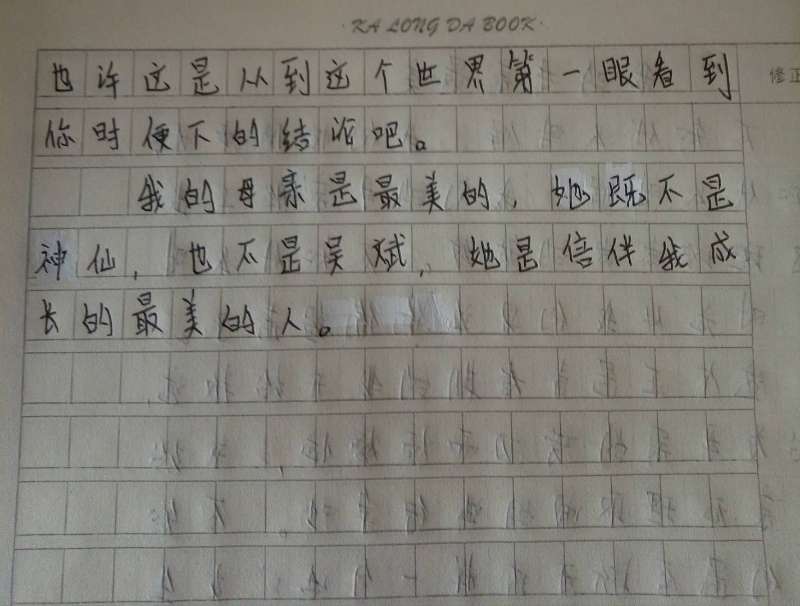 KA LONG DA BOOK
也许这是从到这个世界第一眼看到
修正
你时便下的结论吧。
我的母亲是最美的，她既不是
神仙，也不是吴斌，她是陪伴我成
长的最美的人。